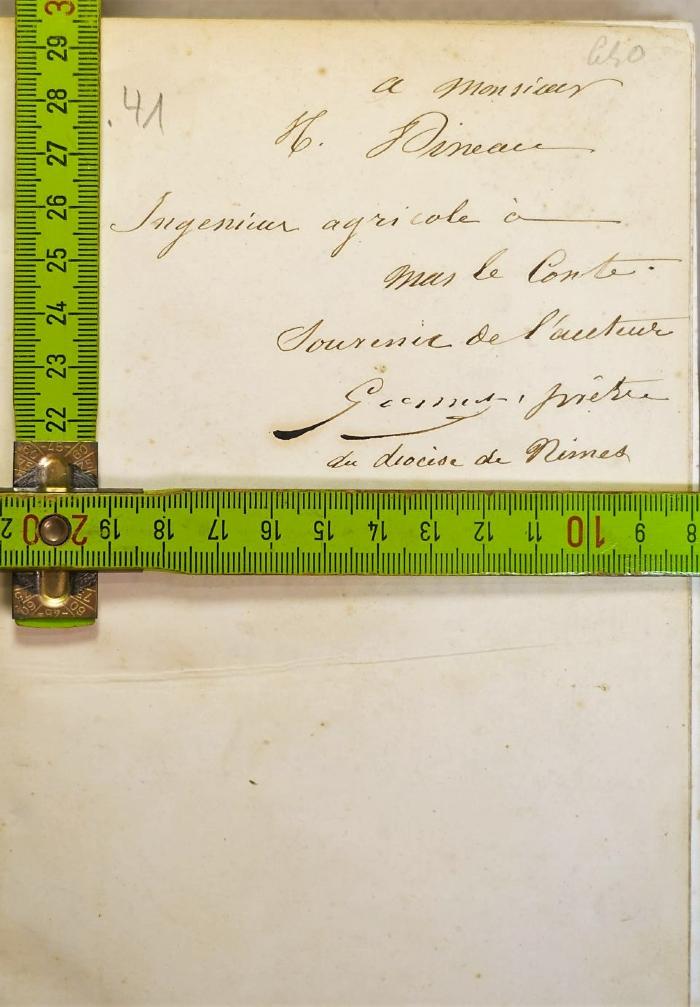 650
41
a monsieur
H. Dineau
Ingenieur agricole à
mas le Conte.
Souvenir de l'auteur
prêtre
du diocèse de Nimes
29
28
27
26
25
24
23
22
2 20 19 18 17 16 15 14 13 12 11 10 9 8